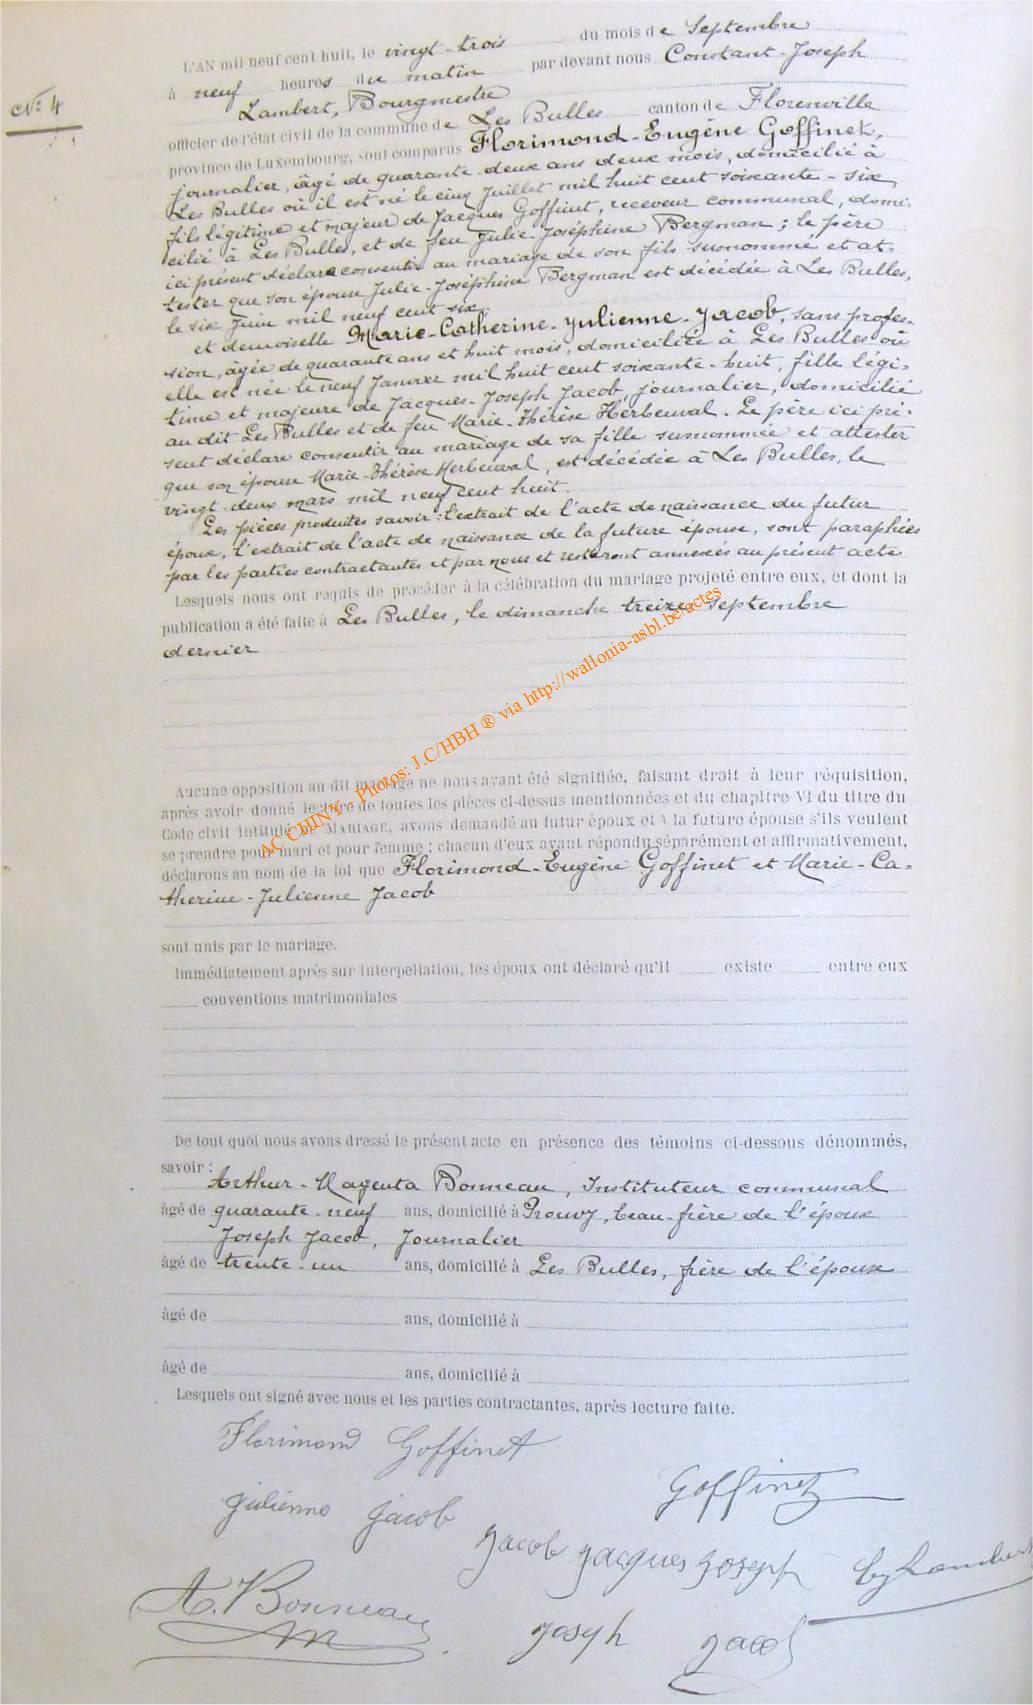 N° 4
L'AN mil neuf cent huit, le vingt-trois du mois de Septembre
à neuf heures du matin par devant nous Constant-Joseph
Lambert, Bourgmestre
officier de l'état civil de la commune de Les Bulles canton de Florenville
province de Luxembourg, sont comparus Florimond-Eugène Goffinet,
journalier, âgé de quarante-deux ans deux mois, domicilié à
Les Bulles où il est né le cinq Juillet mil huit cent soixante-six,
fils légitime et majeur de Jacques Goffinet, receveur communal, domi-
cilié à Les Bulles, et de feu Julie-Joséphine Bergman; le père
ici présent déclare consentir au mariage de son fils susnommé et at-
tester que son épouse Julie-Joséphine Bergman est décédée à Les Bulles,
le six Juin mil neuf cent six.
et demoiselle Marie-Catherine-Julienne-Jacob, sans profes-
sion, âgée de quarante ans et huit mois, domiciliée à Les Bulles où
elle est née le neuf Janvier mil huit cent soixante-huit, fille légi-
time et majeure de Jacques-Joseph Jacob, journalier, domicilié
au dit Les Bulles et de feu Marie-Thérèse Herbeuval. Le père ici pré-
sent déclare consentir au mariage de sa fille susnommée et attester
que son épouse Marie-Thérèse Herbeuval, est décédée à Les Bulles, le
vingt-deux mars mil neuf cent huit.
Les pièces produites savoir: l'extrait de l'acte de naissance du futur
époux, l'extrait de l'acte de naissance de la future épouse, sont paraphées
par les parties contractantes et par nous et resteront annexées au présent acte
Lesquels nous ont requis de procéder à la célébration du mariage projeté entre eux, et dont la
publication a été faite à Les Bulles, le dimanche treize Septembre
dernier
AC CHINY - Photos: J.C/HBH ® via http://wallonia-asbl.be/actes
Aucune opposition au dit mariage ne nous ayant été signifiée, faisant droit à leur réquisition,
après avoir donné lecture de toutes les pièces ci-dessus mentionnées et du chapitre VI du titre du
Code civil intitulé DU MARIAGE, avons demandé au futur époux et à la future épouse s'ils veulent
se prendre pour mari et pour femme; chacun d'eux ayant répondu séparément et affirmativement,
déclarons au nom de la loi que Florimond-Eugène Goffinet et Marie-Ca-
therine-Julienne Jacob
sont unis par le mariage.
Immédiatement après sur interpellation, les époux ont déclaré qu'il existe entre eux
conventions matrimoniales
De tout quoi nous avons dressé le présent acte en présence des témoins ci-dessous dénommés,
savoir:
Arthur-Magenta Bonneau, Instituteur communal
âgé de quarante-neuf ans, domicilié à Prouvy, beau-frère de l'époux
Joseph Jacob, Journalier
âgé de trente-un ans, domicilié à Les Bulles, frère de l'épouse
âgé de ans, domicilié à
âgé de ans, domicilié à
Lesquels ont signé avec nous et les parties contractantes, après lecture faite.
Florimond Goffinet
Goffinet
Julienne Jacob
Jacob Jacques Joseph
Lambert
A. Bonneau
Joseph Jacob